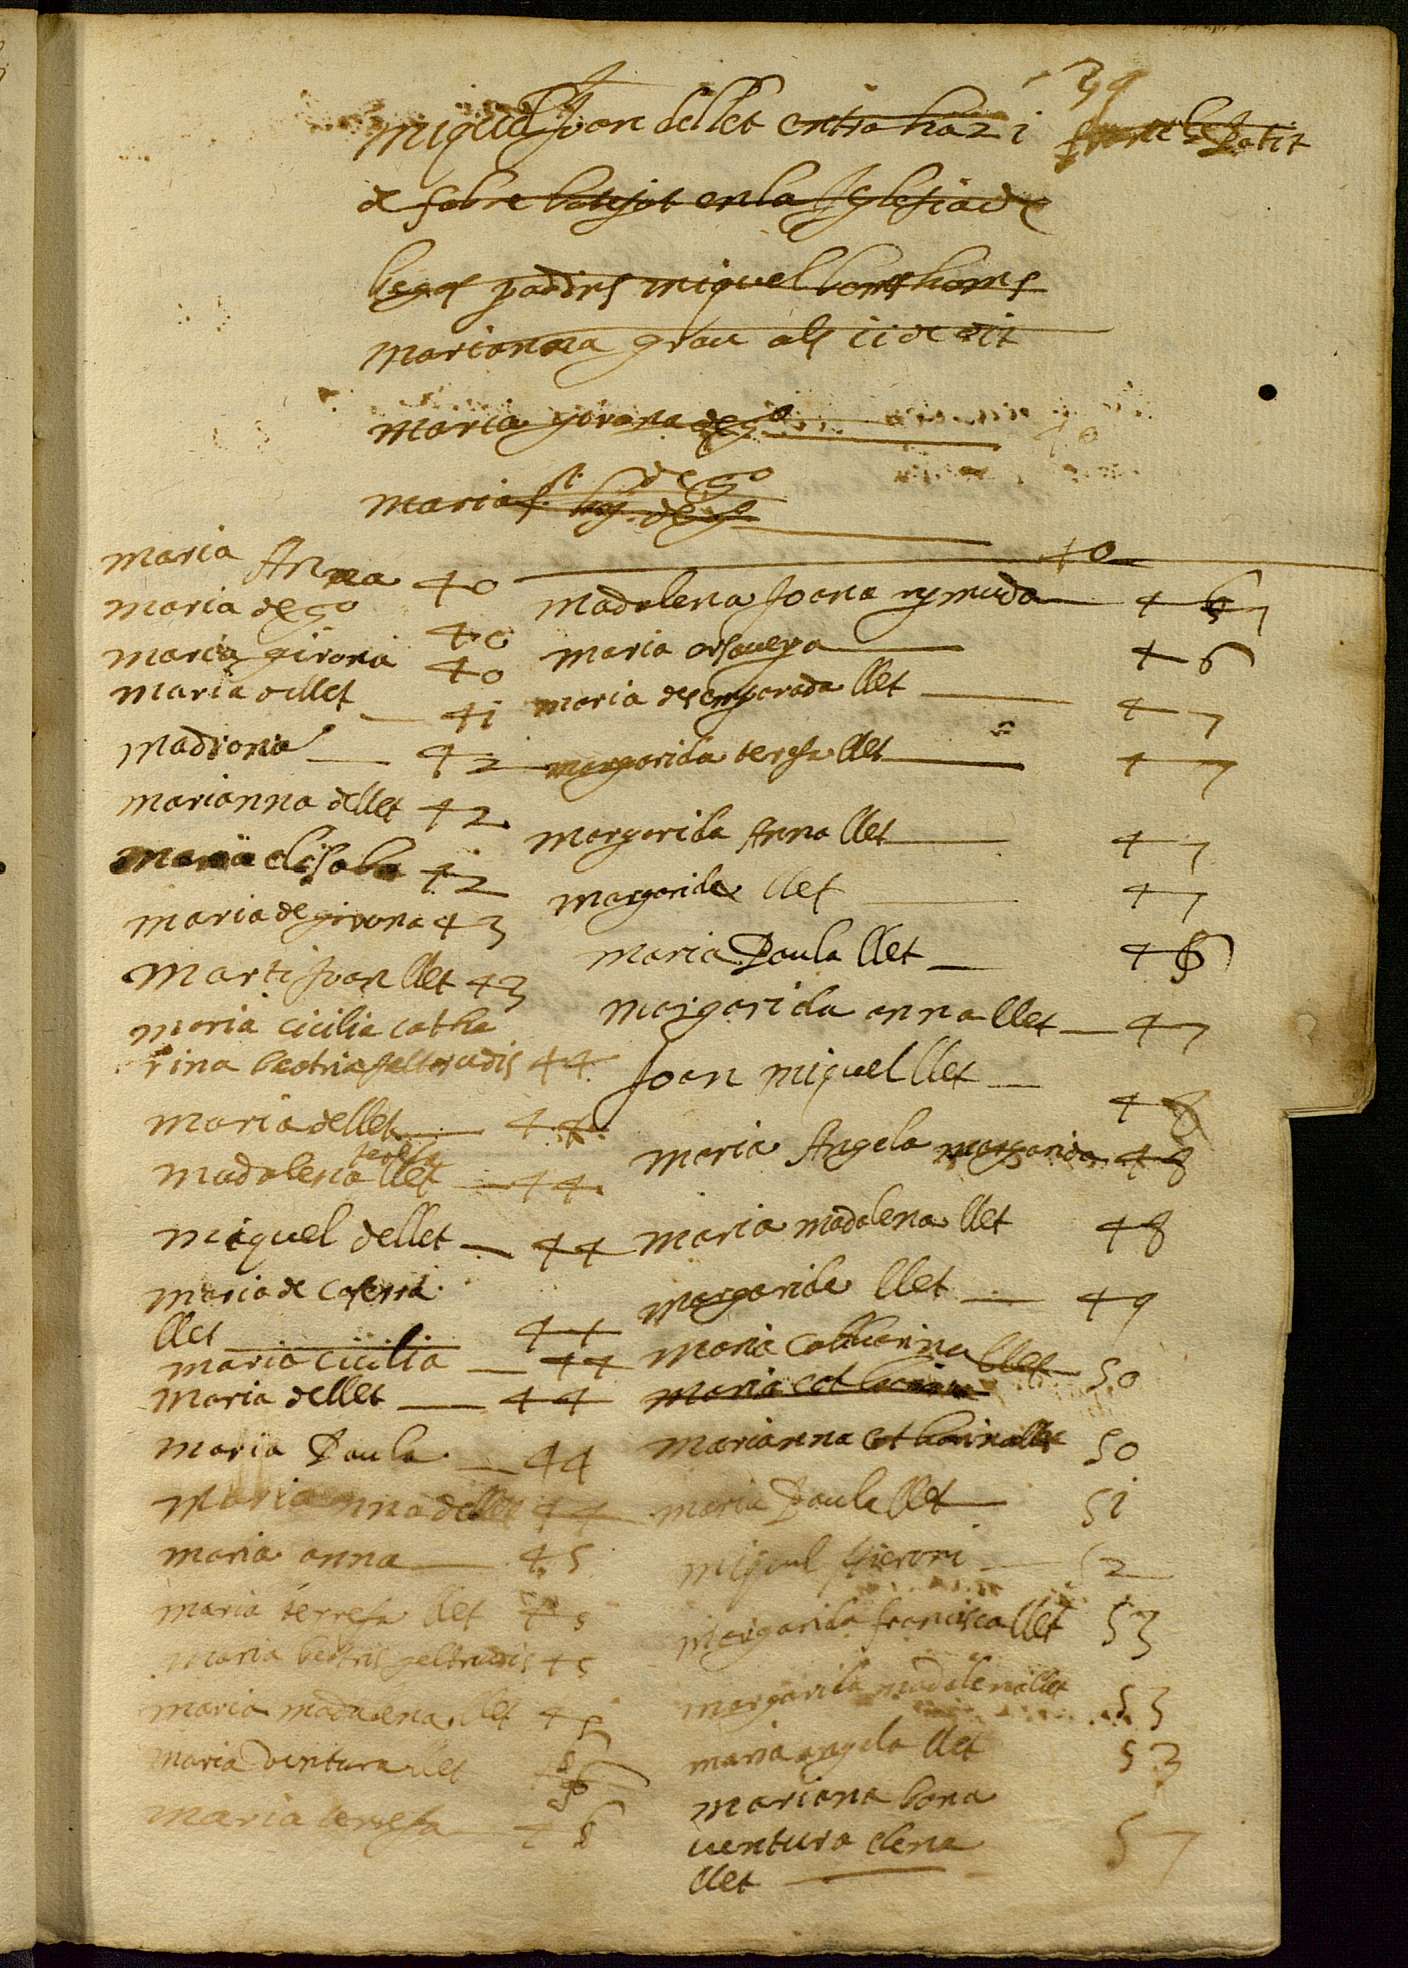 39
Miquel Joan dellet entra ha 21
de fabre batejat en la Iglesia de
begas padins miquel bons homs
Marianna grau als 11 de dit
maria gorona de
maria de
40
maria Anna 40
maria de 40
maria girona 40
maria dellet 41
Madrona 42
marianna dellet 42
maria elisabe 42
maria de girona 43
Marti Joan llet 43
maria cicilia catha
rina beatria geltrudis 44
maria dellet 44
teresa
madalena llet 44
miquel dellet 44
maria de
llet 44
maria cicilia 44
Maria dellet 44
Maria Paula 44
Maria anna dellet 44
maria anna 45
maria terresa llet 45
maria beatris geltrudis 45
maria madalena llet 45
maria ventura llet
maria terresa
madalena Joana
maria 46
maria desemparada llet 47
margarida teresa llet 47
margarida Anna llet 47
margarida llet 47
maria Paula llet
margarida anna llet 47
Joan miquel llet 48
maria Angela margarida 48
maria madalena llet 48
margarida llet 49
Maria Catharina llet 50
maria catharina
marianna catharina llet 50
maria Paula llet 51
miquel 52
margarida francisca llet 53
margarida madalena llet 53
maria angela llet 53
mariana bona
ventura elena 57
llet